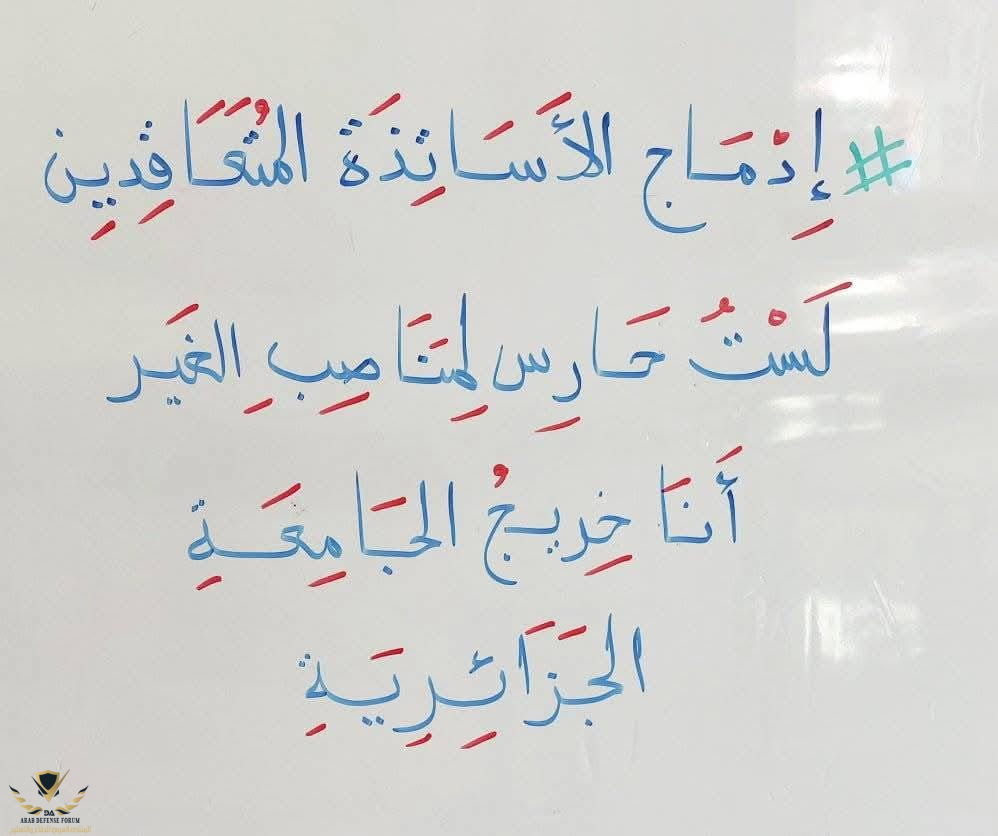 #إِدْمَاج الأَسَاتِذَة المُتَعَاقِدِين
لَسْتُ حَارِس لِمَنَاصِبِ الغَير
أَنَا خِريجُ الجَامِعَةِ
الجَزَائِرِيَةِ
ARAB DEFENSE FORUM